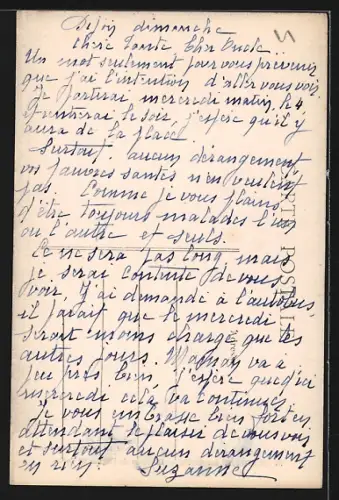 Dijon dimanche
Chère Tante Cher Oncle
Un mot seulement pour vous prévenir
que j'ai l'intention d'aller vous voir
Je partirai mercredi matin, le 4
et rentrerai le soir, j'espère qu'il y
aura de la place.
Surtout aucun dérangement
vos pauvres santés n'en veulent
pas. Comme je vous plains
d'être toujours malades l'un
ou l'autre et seuls.
Ce ne sera pas long mais
je serai contente de vous
voir. J'ai demandé à l'autobus,
il paraît que le mercredi
serait moins chargé que les
autres jours. Maman va à
peu près bien, j'espère que d'ici
mercredi cela va continuer.
Je vous embrasse bien fort en
attendant le plaisir de vous voir
et surtout aucun dérangement
en rien. Suzanne
CARTE POSTALE